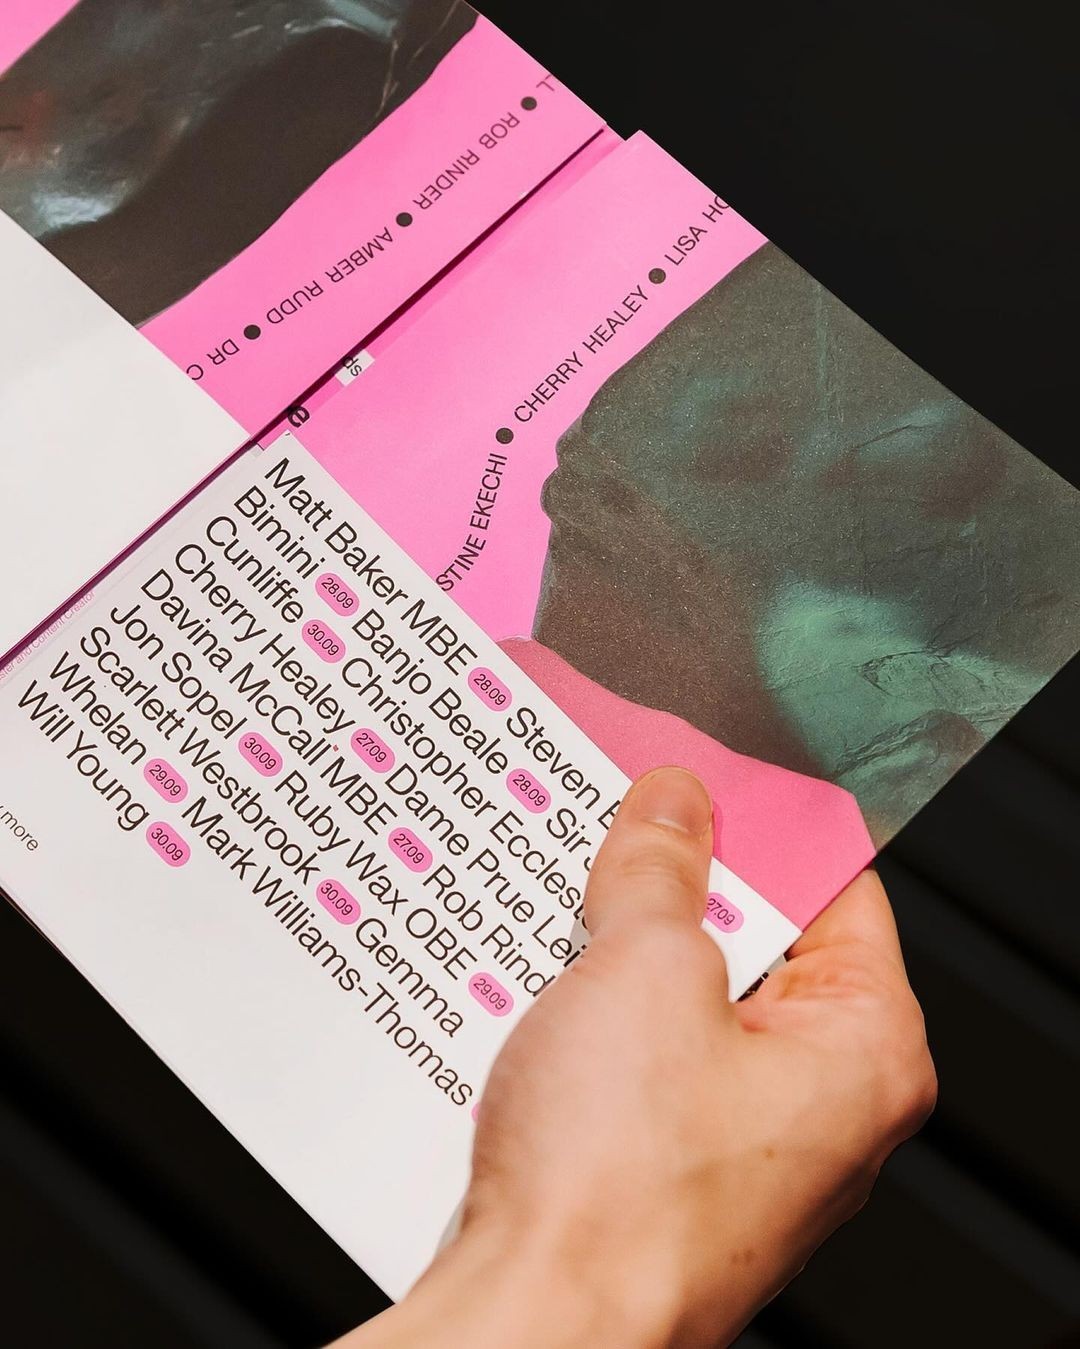 ROB RINDER ●
AMBER RUDD ●
DR
STINE EKECHI ● CHERRY HEALEY ● LISA
ds
e
Matt Baker MBE 28.09 Steven
Bimini 28.09 Banjo Beale 28.09 Sir
Cunliffe 30.09 Christopher Ecclest
Cherry Healey 27.09 Dame Prue Lei 27.09
Davina McCall MBE 27.09 Rob Rind
Jon Sopel 30.09 Ruby Wax OBE 29.09
Scarlett Westbrook 30.09 Gemma
Whelan 29.09 Mark Williams-Thomas
Will Young 30.09
and Content Creator
more